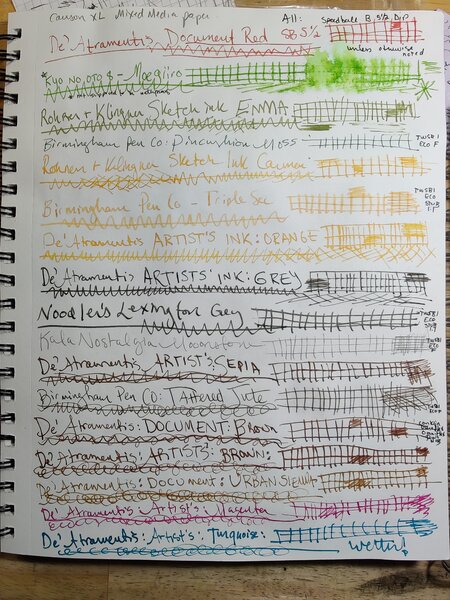 Canson XL Mixed Media paper All: Speedball B 5 1/2 Dip
unless otherwise noted
De'Atramentis Document Red SB 5 1/2
*Kyo No.Oto $ - Moegiiro
Rohrer + Klingner Sketch ink EMMA
Birmingham Pen Co: Pincushion Moss TWSBI ECO F
Rohrer + Klingner Sketch Ink Carmen
Birmingham Pen Co - Triple Sec TWSBI ECO STUB 1.1
De'Atramentis ARTIST'S INK: ORANGE
De'Atramentis ARTISTS' INK: GREY
Noodler's Lexington Grey TWSBI ECO STUB 1.1
Kala Nostalgia Moonstone TWSBI ECO
De'Atramentis ARTIST'S: SEPIA
Birmingham Pen Co: Tattered Jute
De'Atramentis: DOCUMENT: Brown
De'Atramentis: ARTISTS: BROWN:
De'Atramentis: Document: URBAN Sienna
De'Atramentis: Artist's: Magenta
De'Atramentis: Artist's: Turquoise: wetter!